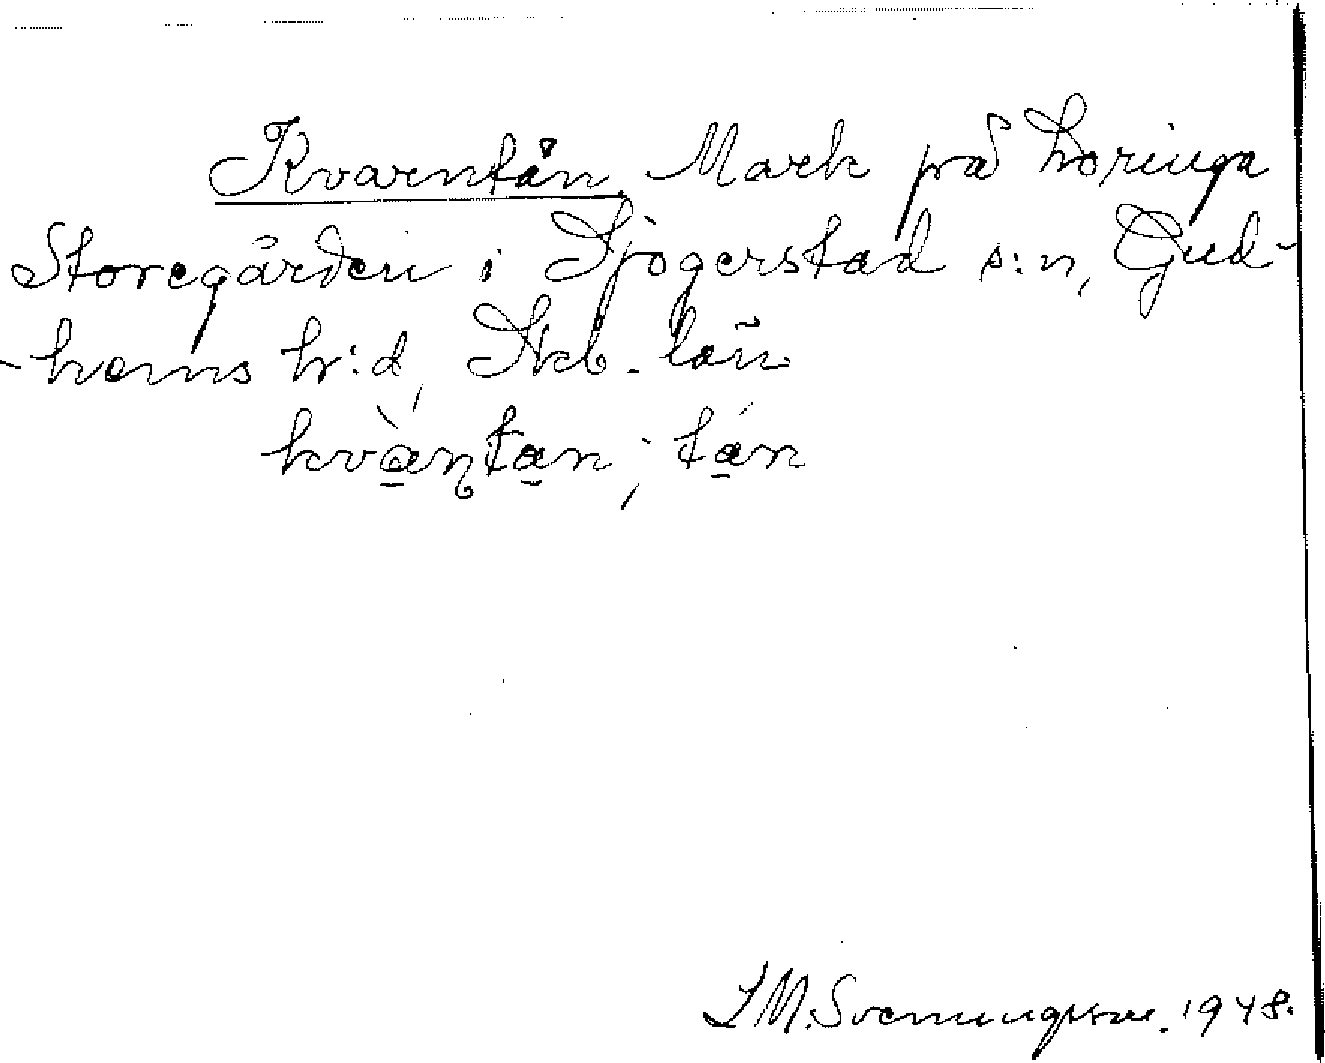 Kvarntån. Mark på Loringa
Storegården i Sjögerstad s:n, Gud-
-hems h:d, Skb. län
kvàṇtan; tán
S M. Svenungsson. 1948.